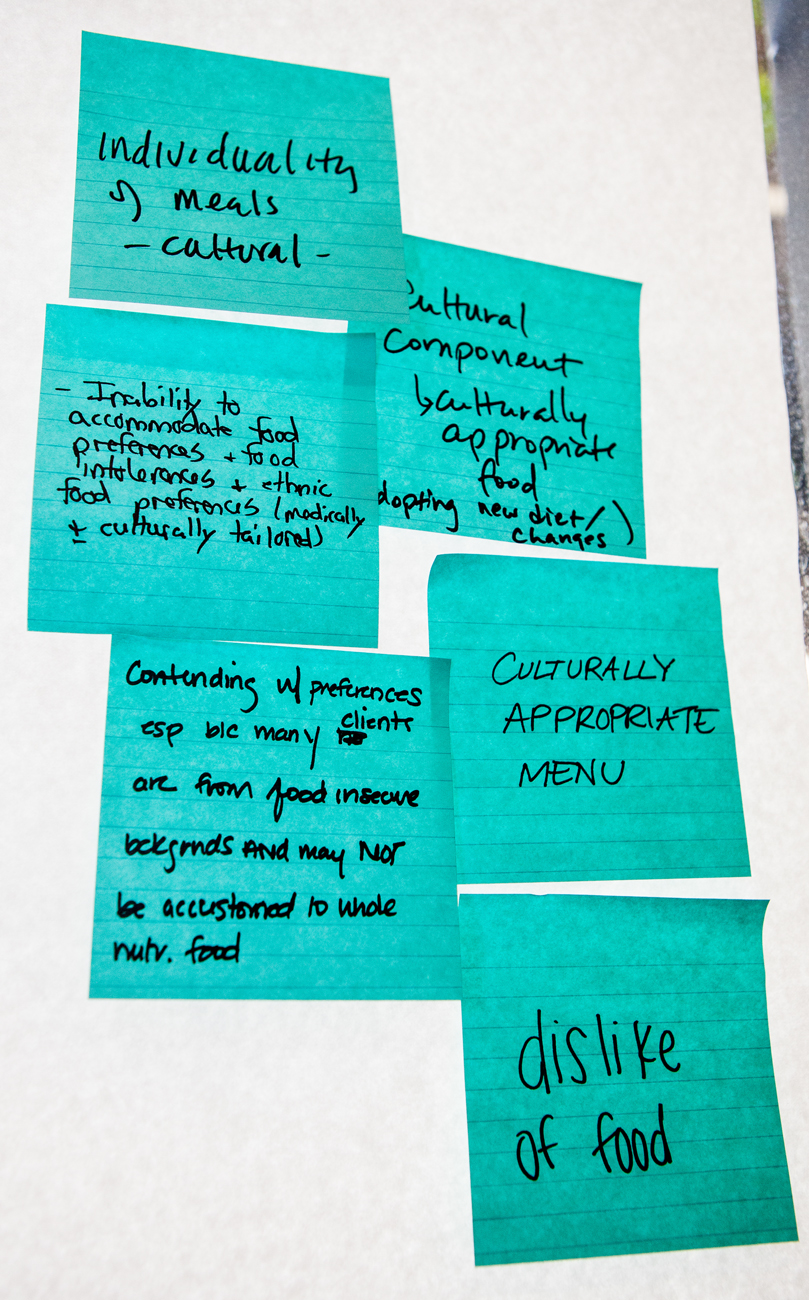 individuality
of meals
- cultural -
Cultural
component
↳ culturally
appropriate
food
adopting new diet/)
changes
- Inability to
accommodate food
preferences + food
intolerences + ethnic
food preferences (medically
± culturally tailored)
Contending w/ preferences
esp b/c many clients
are from food insecure
bckgrnds AND may NOT
be accustomed to whole
nutr. food
CULTURALLY
APPROPRIATE
MENU
dislike
of food